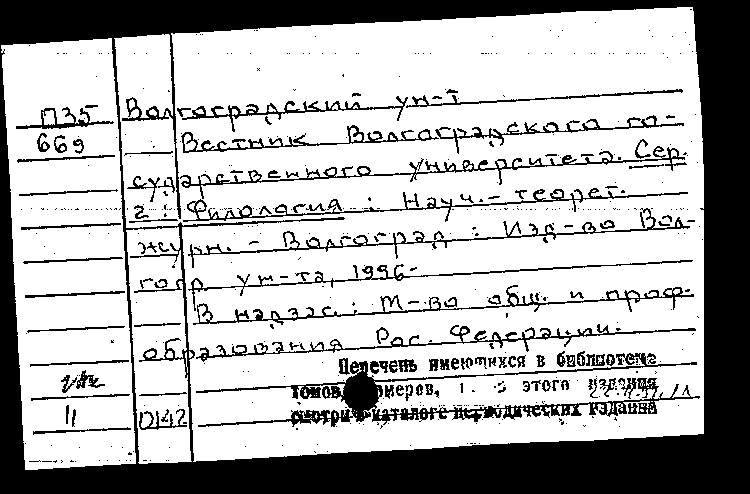 П35 Волгоградский ун-т
669 Вестник Волгоградского го-
сударственного университета. Сер.
2: Филология : Науч.- теорет.
журн. - Волгоград : Изд-во Вол-
гогр ун-та, 1996-
В надзаг.: М-во общ. и проф.
образования Рос. Федерации.
Перечень имеющихся в библиотеке
томов, номеров, г. г. этого издания
смотри в каталоге периодических изданий
11 D142